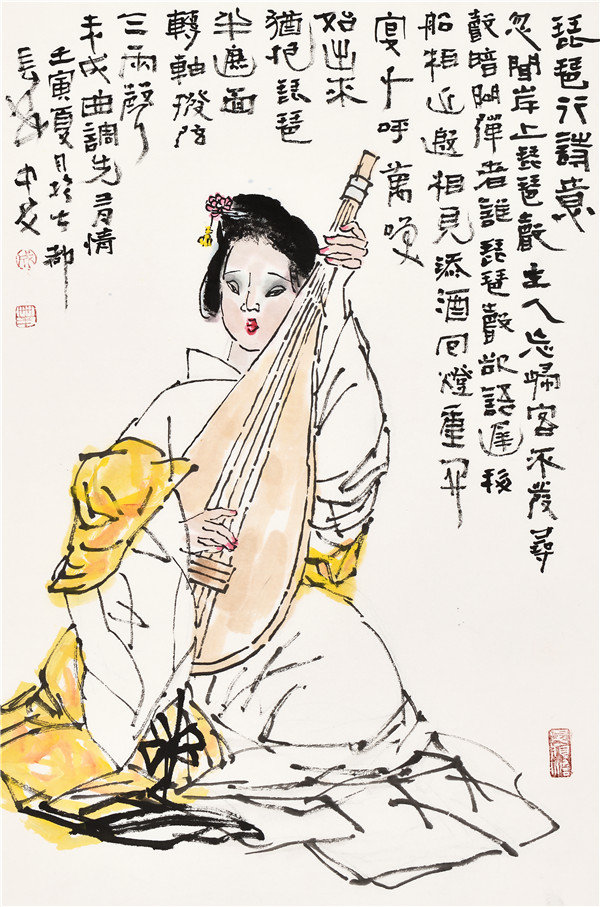 琵琶行詩意
忽聞岸上琵琶聲主人忘歸客不發尋
聲暗問彈者誰琵琶聲欲語遲移
船相近邀相見添酒回燈重開
宴千呼萬喚
始出來
猶抱琵琶
半遮面
轉軸撥弦
三兩聲
未成曲調先有情
壬寅夏月於都